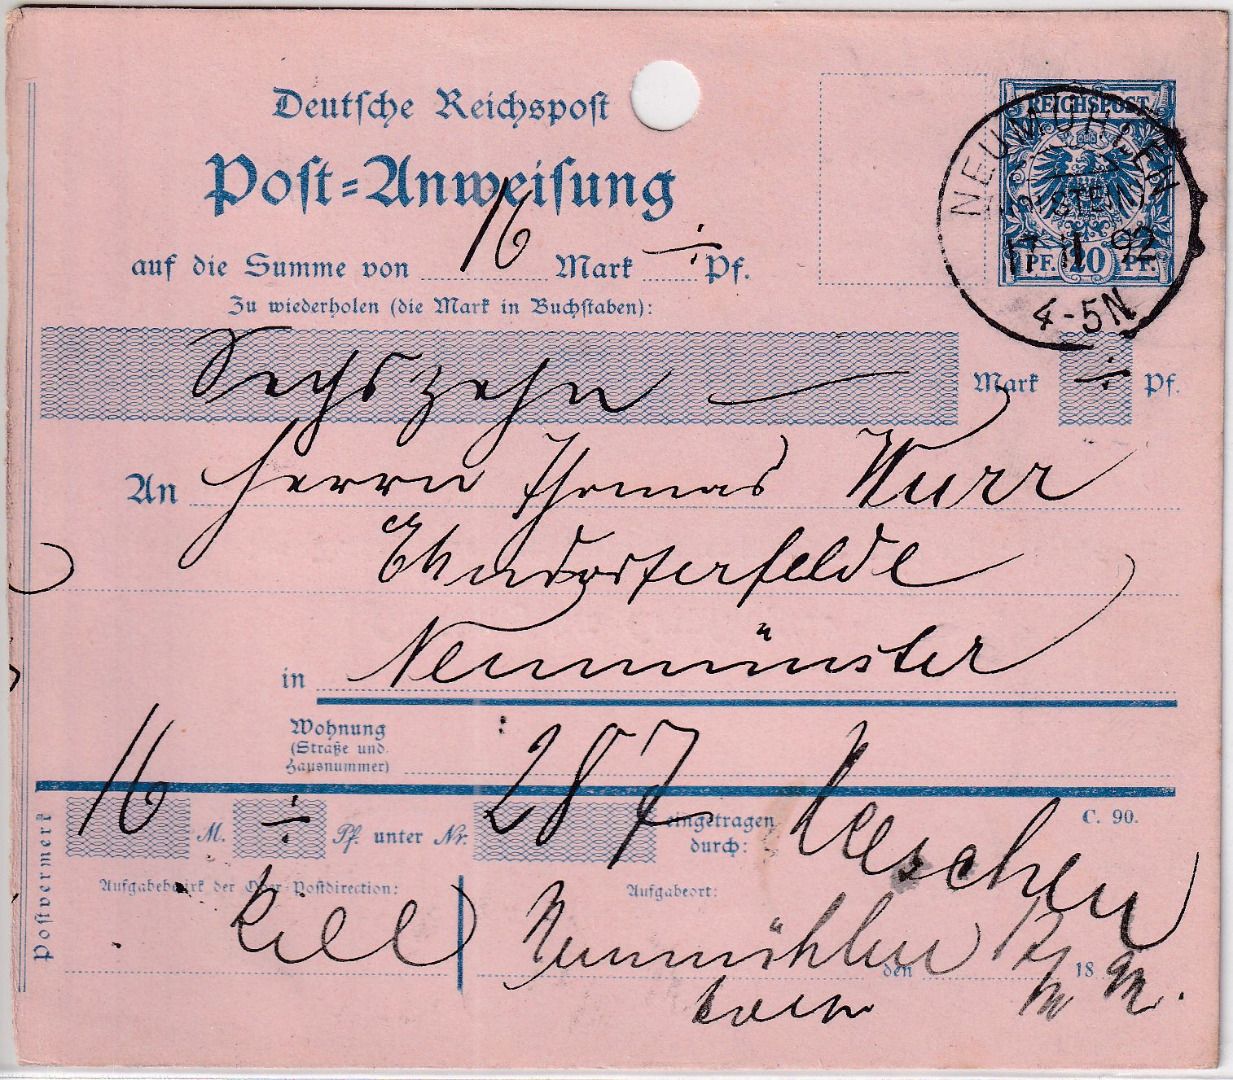 Deutsche Reichspost
Post-Anweisung
auf die Summe von 16 Mark ÷ Pf.
Zu wiederholen (die Mark in Buchstaben):
REICHSPOST
PF. 20 PF.
NEUMÜHLEN
17 11 92
4-5N
Sechszehn Mark ÷ Pf.
An Herrn Thomas Wurr
Ehndorferfelde
in Neumünster
Wohnung
(Straße und
Hausnummer)
Postvermerk
16 M. ÷ Pf. unter Nr. 287 eingetragen
durch:
C. 90.
Aufgabebezirk der Ober-Postdirection:
Aufgabeort:
Kiel Neumühlen den 17 18 92.